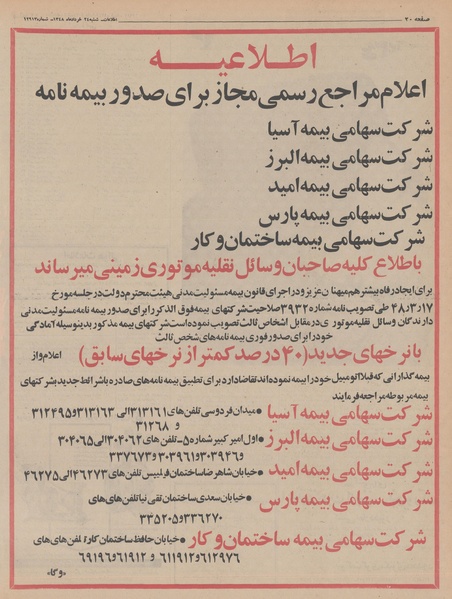 صفحه ۲۰
اطلاعات شنبه ۲۴ خردادماه ۱۳۴۸ـ شماره ۱۲۹۱۳
اطلاعیه
اعلام مراجع رسمی مجاز برای صدور بیمه نامه
شرکت سهامی بیمه آسیا
شرکت سهامی بیمه البرز
شرکت سهامی بیمه امید
شرکت سهامی بیمه پارس
شرکت سهامی بیمه ساختمان و کار
باطلاع کلیه صاحبان وسائل نقلیه موتوری زمینی میرساند
برای ایجاد رفاه بیشتر هم میهنان عزیز و در اجرای قانون بیمه مسئولیت مدنی هیئت محترم دولت در جلسه مورخ
۱۷ر۳ر۴۸ طی تصویب نامه شماره ۳۹۳۲ صلاحیت شرکتهای بیمه فوق الذکر را برای صدور بیمه نامه مسئولیت مدنی
دارندگان وسائل نقلیه موتوری در مقابل اشخاص ثالث تصویب نموده است شرکتهای بیمه مذکور بدینوسیله آمادگی
خود را برای صدور فوری بیمه نامه های شخص ثالث
با نرخهای جدید (۴۰ درصد کمتر از نرخهای سابق) اعلام و از
بیمه گذارانی که قبلا اتومبیل خود را بیمه نموده اند تقاضا دارد برای تطبیق بیمه نامه های صادره با شرائط جدید بشرکتهای
بیمه مربوطه مراجعه فرمایند
شرکت سهامی بیمه آسیا • میدان فردوسی تلفن های ۳۱۳۱۶۱ الی ۳۱۳۱۶۳ و ۳۱۲۴۹۵
و ۳۱۲۶۸
شرکت سهامی بیمه البرز • اول امیر کبیر شماره ۵ـ تلفن های ۳۰۴۰۶۲ الی ۳۰۴۰۶۵
و ۳۰۳۹۴۶ و ۳۰۳۹۶۱ و ۳۳۷۶۷۳
شرکت سهامی بیمه امید • خیابان شاهرضا ساختمان فرلیپس تلفن های ۴۶۲۷۳ الی ۴۶۲۷۵
شرکت سهامی بیمه پارس • خیابان سعدی ساختمان تقی نیا تلفن های های
۳۳۶۲۷۰ و ۳۳۵۲۰۵
شرکت سهامی بیمه ساختمان و کار • خیابان حافظ ساختمان کار تلفن های های
۶۱۲۹۷۶ و ۶۱۱۹۱۲ و ۶۱۹۱۲ و ۶۹۱۹۶
«و گا»